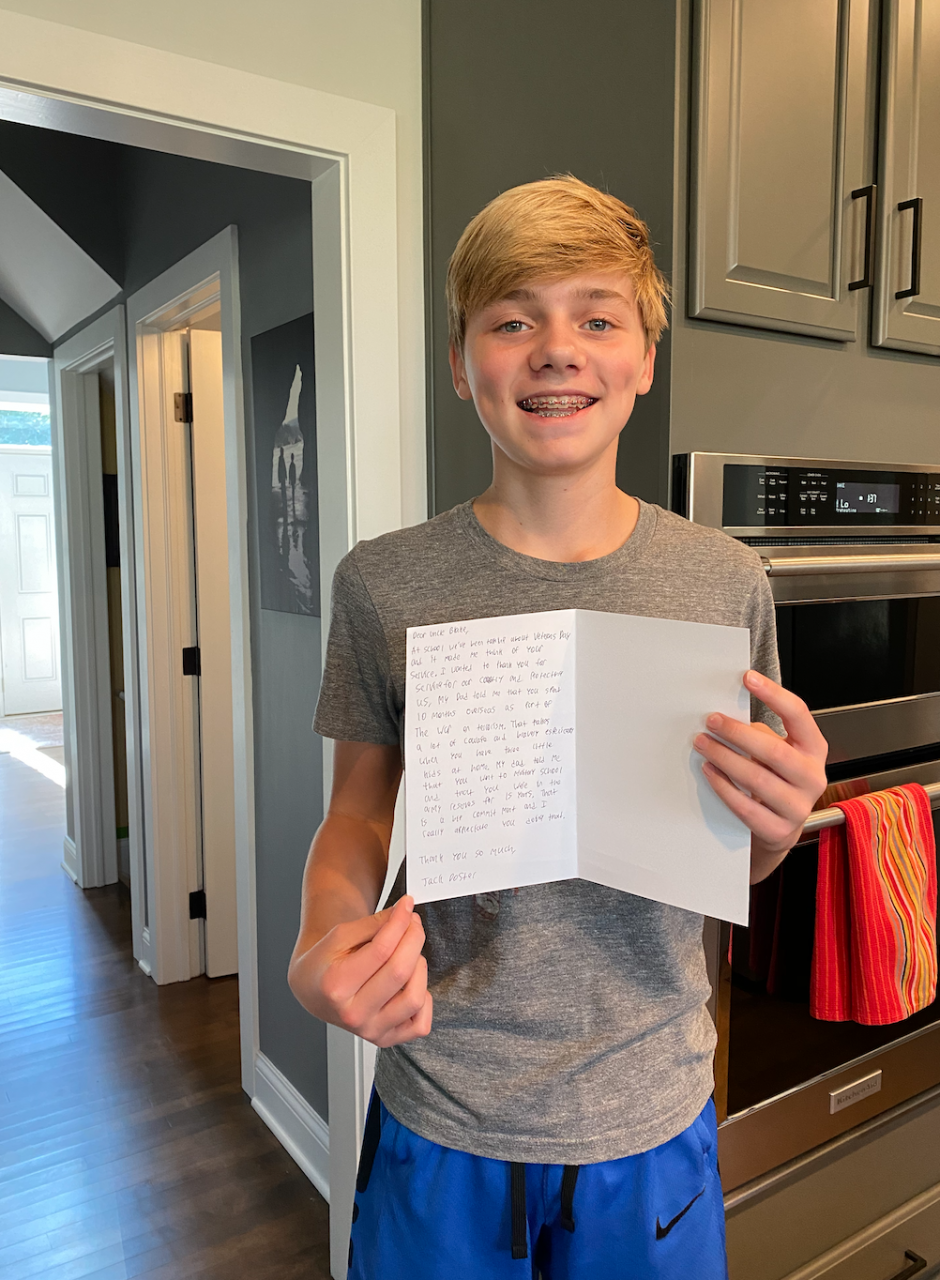 Dear Uncle Blake,
At school we've been talking about Veterans Day
and it made me think of your
service. I wanted to thank you for
serving for our country and protecting
us. My Dad told me that you spent
10 months overseas as part of
The War on terrorism. That takes
a lot of courage and bravery especially
when you have three little
kids at home. My dad told me
that you went to military school
and that you were in the
army reserves for 15 years. That
is a big commitment and I
really appreciate you doing that.
Thank you so much,
Jack Doster
BAKE
Lo
1:37
KitchenAid